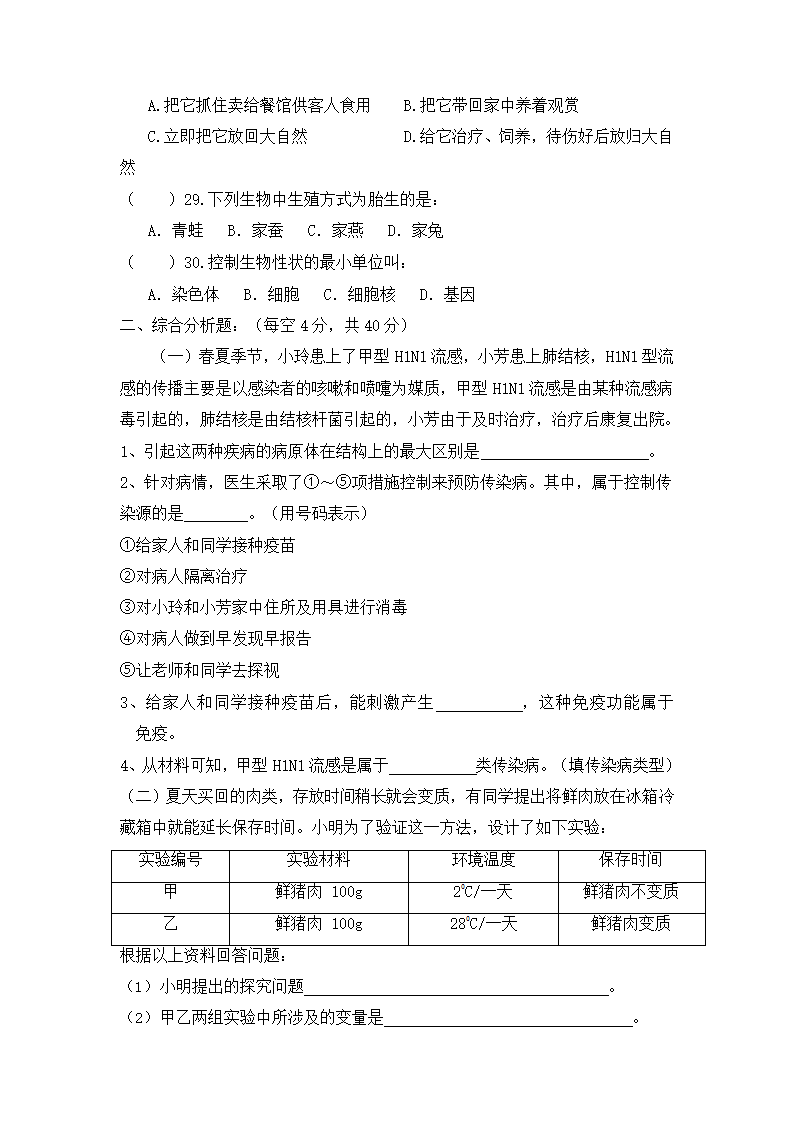 A.把它抓住卖给餐馆供客人食用 B.把它带回家中养着观赏
C.立即把它放回大自然 D.给它治疗、饲养，待伤好后放归大自
然
（ ）29.下列生物中生殖方式为胎生的是：
A．青蛙 B．家蚕 C．家燕 D．家兔
（ ）30.控制生物性状的最小单位叫：
A．染色体 B．细胞 C．细胞核 D．基因
二、综合分析题：（每空4分，共40分）
（一）春夏季节，小玲患上了甲型H1N1流感，小芳患上肺结核，H1N1型流
感的传播主要是以感染者的咳嗽和喷嚏为媒质，甲型H1N1流感是由某种流感病
毒引起的，肺结核是由结核杆菌引起的，小芳由于及时治疗，治疗后康复出院。
1、引起这两种疾病的病原体在结构上的最大区别是_____________________。
2、针对病情，医生采取了①～⑤项措施控制来预防传染病。其中，属于控制传
染源的是________。（用号码表示）
①给家人和同学接种疫苗
②对病人隔离治疗
③对小玲和小芳家中住所及用具进行消毒
④对病人做到早发现早报告
⑤让老师和同学去探视
3、给家人和同学接种疫苗后，能刺激产生___________，这种免疫功能属于
免疫。
4、从材料可知，甲型H1N1流感是属于___________类传染病。（填传染病类型）
（二）夏天买回的肉类，存放时间稍长就会变质，有同学提出将鲜肉放在冰箱冷
藏箱中就能延长保存时间。小明为了验证这一方法，设计了如下实验：
实验编号 实验材料 环境温度 保存时间
甲 鲜猪肉 100g 2⁰C/一天 鲜猪肉不变质
乙 鲜猪肉 100g 28⁰C/一天 鲜猪肉变质
根据以上资料回答问题：
（1）小明提出的探究问题______________________________________。
（2）甲乙两组实验中所涉及的变量是_______________________________。